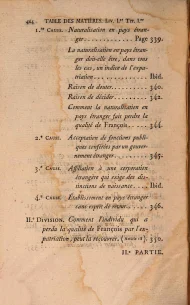 464 TABLE DES MATIÈRES. LIV. I.er TIT. I.er
1.re CAUSE. Naturalisation en pays étranger. Page 339.
La naturalisation en pays étranger doit-elle être, dans tous
les cas, un indice de l'expatriation. Ibid.
Raison de douter. 340.
Raison de décider. 342.
Comment la naturalisation en
pays étranger fait perdre la
qualité de François. 344.
2.e CAUSE. Acceptation de fonctions publiques conférées par un gouvernement
étranger. 345.
3.e CAUSE. Affiliation à une corporation
étrangère qui exige des distinctions
de naissance. Ibid.
4.e CAUSE. Établissement en pays étranger
sans esprit de retour. 346.
II.e DIVISION. Comment l'individu qui a
perdu la qualité de François par l'expatriation,
peut la recouvrer. 350.
II.e PARTIE.